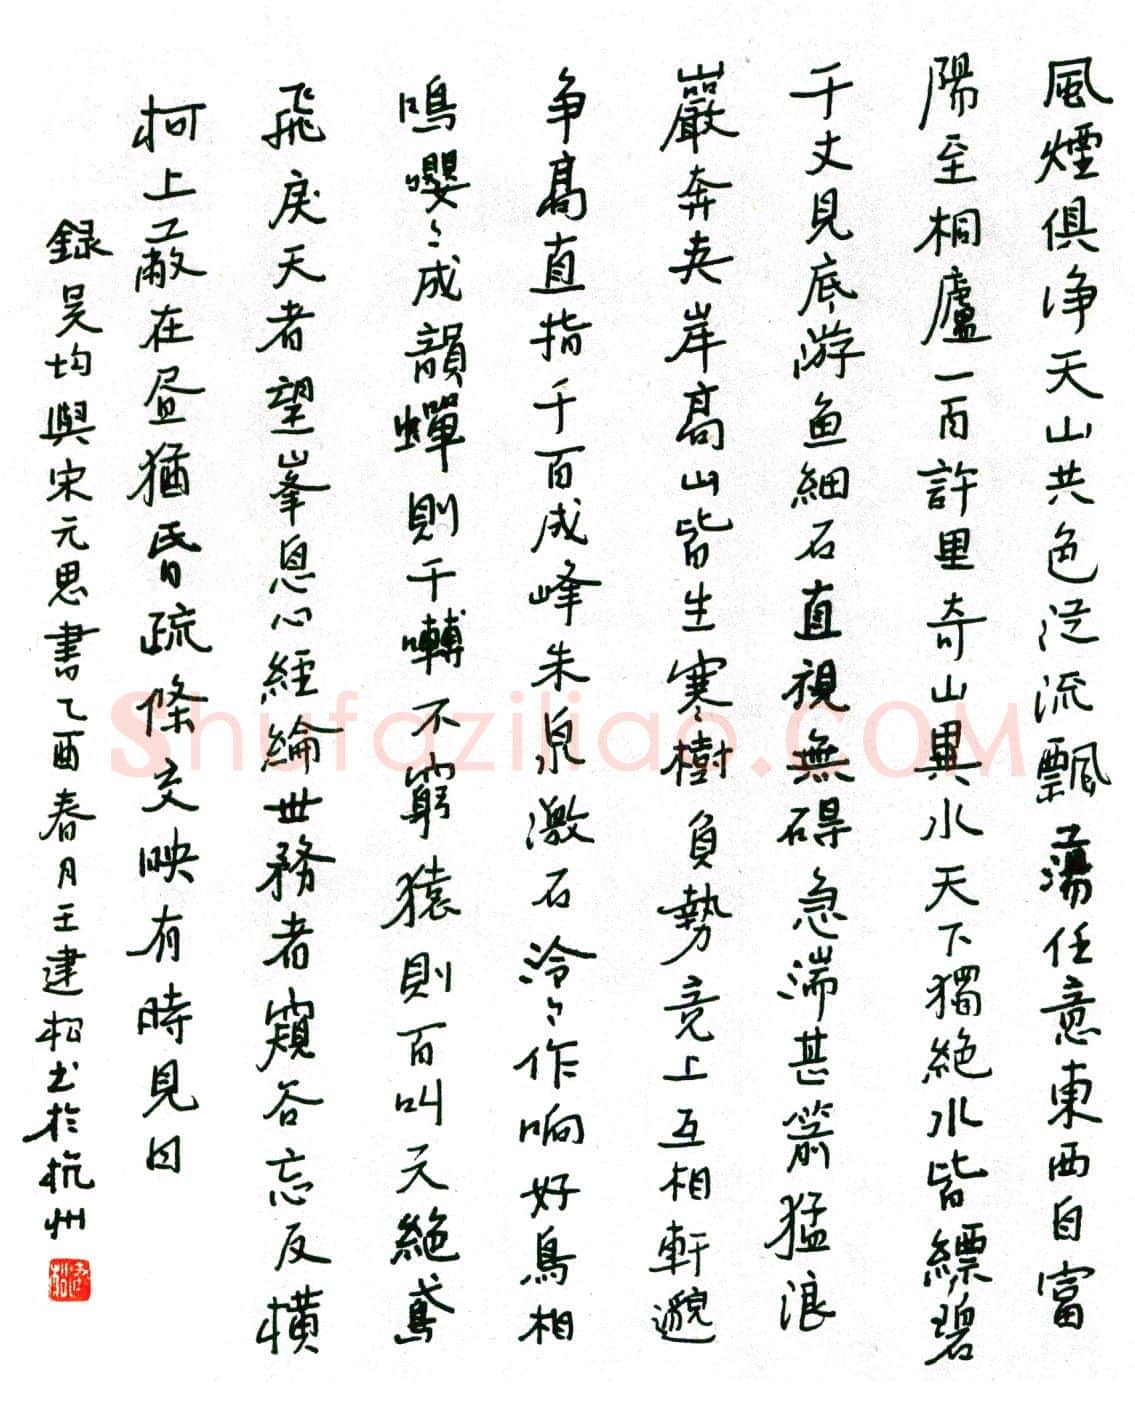 風煙俱净天山共色從流飄蕩任意東西自富
陽至桐廬一百許里奇山異水天下獨絶水皆縹碧
千丈見底游魚細石直視無碍急湍甚箭猛浪
巖奔夹岸高山皆生寒樹負勢竞上互相軒邈
争高直指千百成峰朱泉激石泠々作响好鳥相
鳴嚶々成韻蟬則千囀不窮猿則百叫无絶鳶
飛戾天者望峯息心經綸世務者窺谷忘反横
柯上蔽在昼猶昏疏條交映有時見日
録吴均與宋元思書乙酉春月王建松书於杭州
Shufaziliao.COM